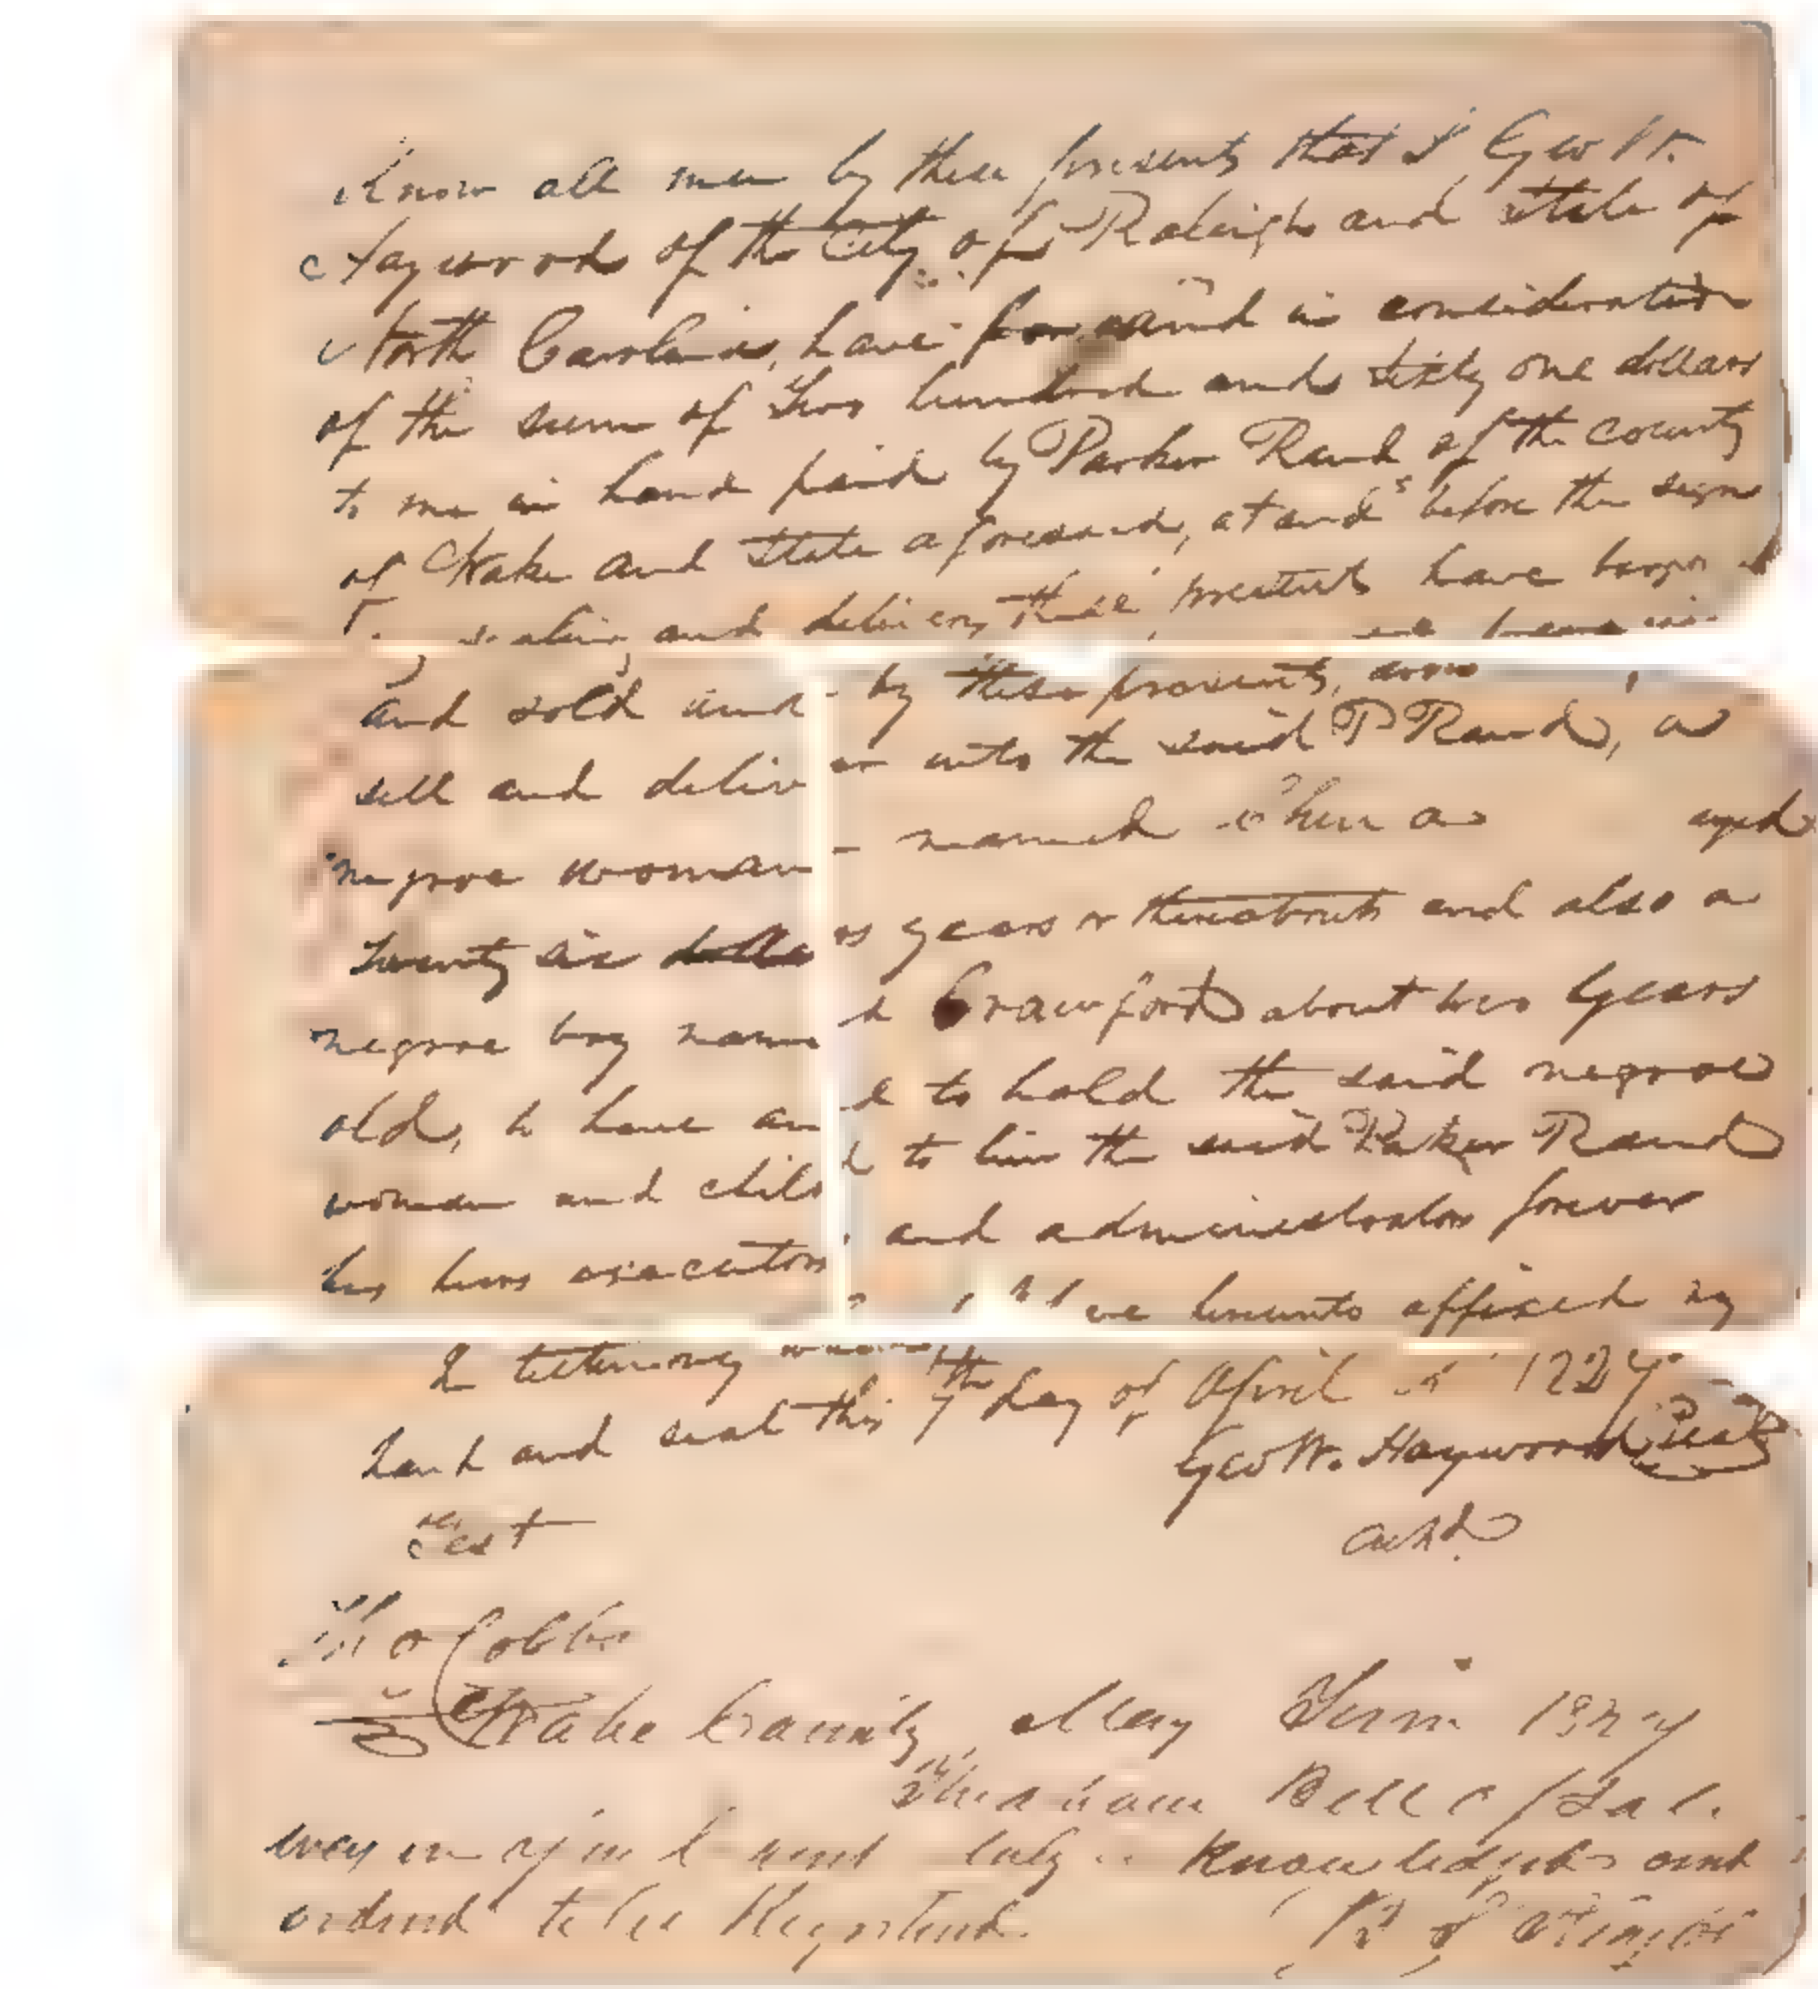 Know all men by these presents that I Geo W.
Haywood of the City of Raleigh and State of
North Carolina, have for and in consideration
of the sum of Two hundred and sixty one dollars
to me in hand paid by Parker Rand of the county
of Wake and State aforesaid, at and before the
sealing and delivery these presents have
and sold and by these presents, do
sell and deliver unto the said P Rand, a
negroe woman named aged
Twenty six years or thereabouts and also a
negroe boy named Crawford about two years
old, to have and to hold the said negroe
woman and child to him the said Parker Rand
his heirs executors and administrators forever
In testimony have hereunto affixed my
hand and seal this 7th day of April
Geo W. Haywood Seal
Test
ackd.
Tho Cobbs
Wake County May Term
Bill of Sale
was in open knowledged and
ordered to be Registered.
B S